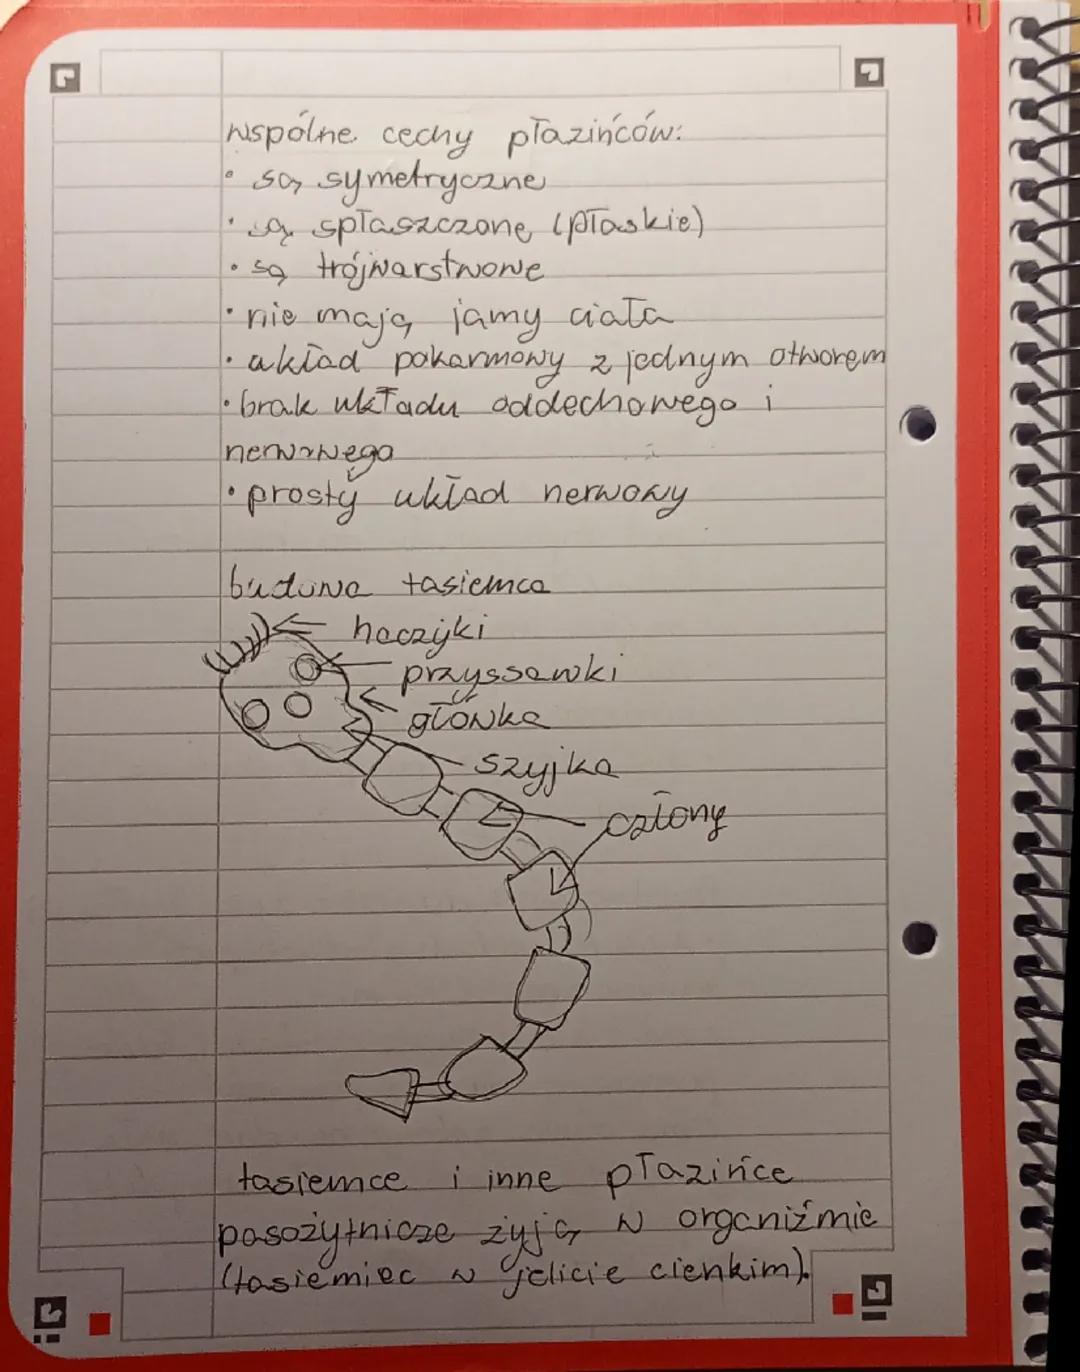 wspólne cechy płazińców:
• są symetryczne
• są spłaszczone (płaskie)
• są trójwarstwowe
• nie mają jamy ciała
• układ pokarmowy z jednym otworem
• brak układu oddechowego i
nerwowego
• prosty układ nerwowy
budowa tasiemca
haczyki
przyssawki
główka
szyjka
człony
tasiemce i inne płazińce
pasożytnicze żyją w organiźmie
(tasiemiec w jelicie cienkim).